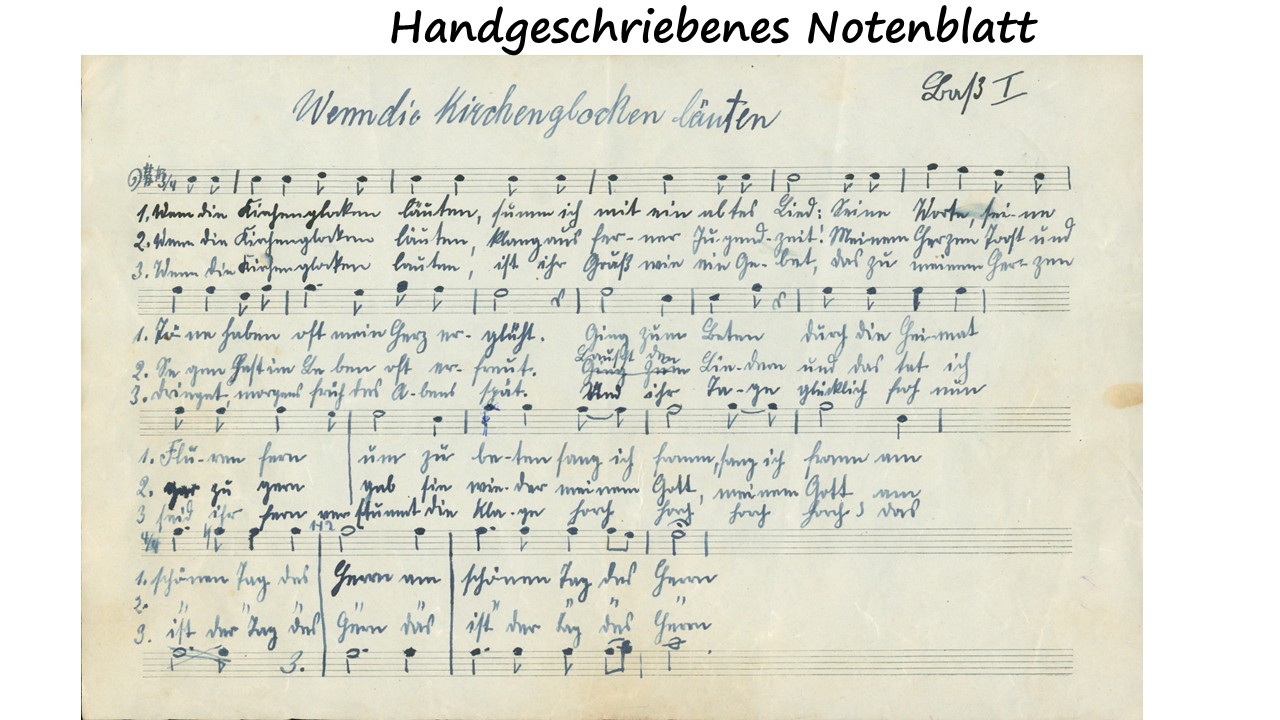 Handgeschriebenes Notenblatt
Baß I
Wenn die Kirchenglocken läuten
3/4
1. Wenn die Kirchenglocken läuten, summ ich mit ein altes Lied: Seine Worte, sei-ne
2. Wenn die Kirchenglocken läuten, klang aus fer-ner Ju-gend-zeit! Meinem Herzen Trost und
3. Wenn die Kirchenglocken läuten, ist ihr Gruß wie ein Ge-bet, das zu meinem Her-zen
1. Tö-ne haben oft mein Herz er-glüht. Ging zum Beten durch die Heimat
Lauscht den
2. Se gen hast im Le ben oft er-freut. Ging zum Lie-dern und das tat ich
3. dringet, morgens früh des A-bens spät. Und ihr Ta-ge glücklich froh nun
1. Flu-ren fern um zu be-ten sang ich fromm, sang ich fromm am
2. gar zu gern gab sie wie-der meinem Gott, meinem Gott am
3 seid ihr fern ver stummt die Kla-ge horch horch horch horch das
4/4 1+2
1. schönen Tag des Herrn am schönen Tag des Herrn
2. " " " " " " "
3. ist der Tag des Herrn das ist der Tag des Herrn
3.